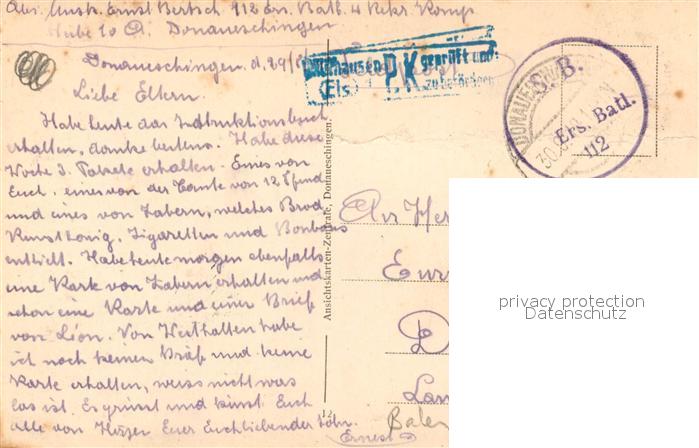 Abs. Musk. Ernst Bertsch 112 Ers. Batl. 4 Rekr. Komp
Stube 10 A. Donaueschingen
Donaueschingen. d. 29/
Liebe Eltern.
Habe heute das Instruktionsbuch
erhalten, danke bestens. Habe diese
Woche 3. Pakete erhalten. Eines von
Euch, eines von der Tante von 12 Pfund
und eines von Zabern, welches Brod
Kunsthonig, Zigaretten und Bonbons
enthielt. Habe heute morgen ebenfalls
eine Karte von Zabern erhalten und
schon eine Karte und einen Brief
von Léon. Von Westhalten habe
ich noch keinen Brief und keine
Karte erhalten, weiss nicht was
los ist. Es grüsst und küsst Euch
alle von Herzen Euer Euchliebender Sohn.
Ernest
Mülhausen
(Els)
P.K.
geprüft und
zu befördern
DONAUESCHINGEN
30.
S. B.
Ers. Batl.
112
Ansichtskarten-Zentrale, Donaueschingen
12
An Her
Eur
D
Lan
privacy protection
Datenschutz